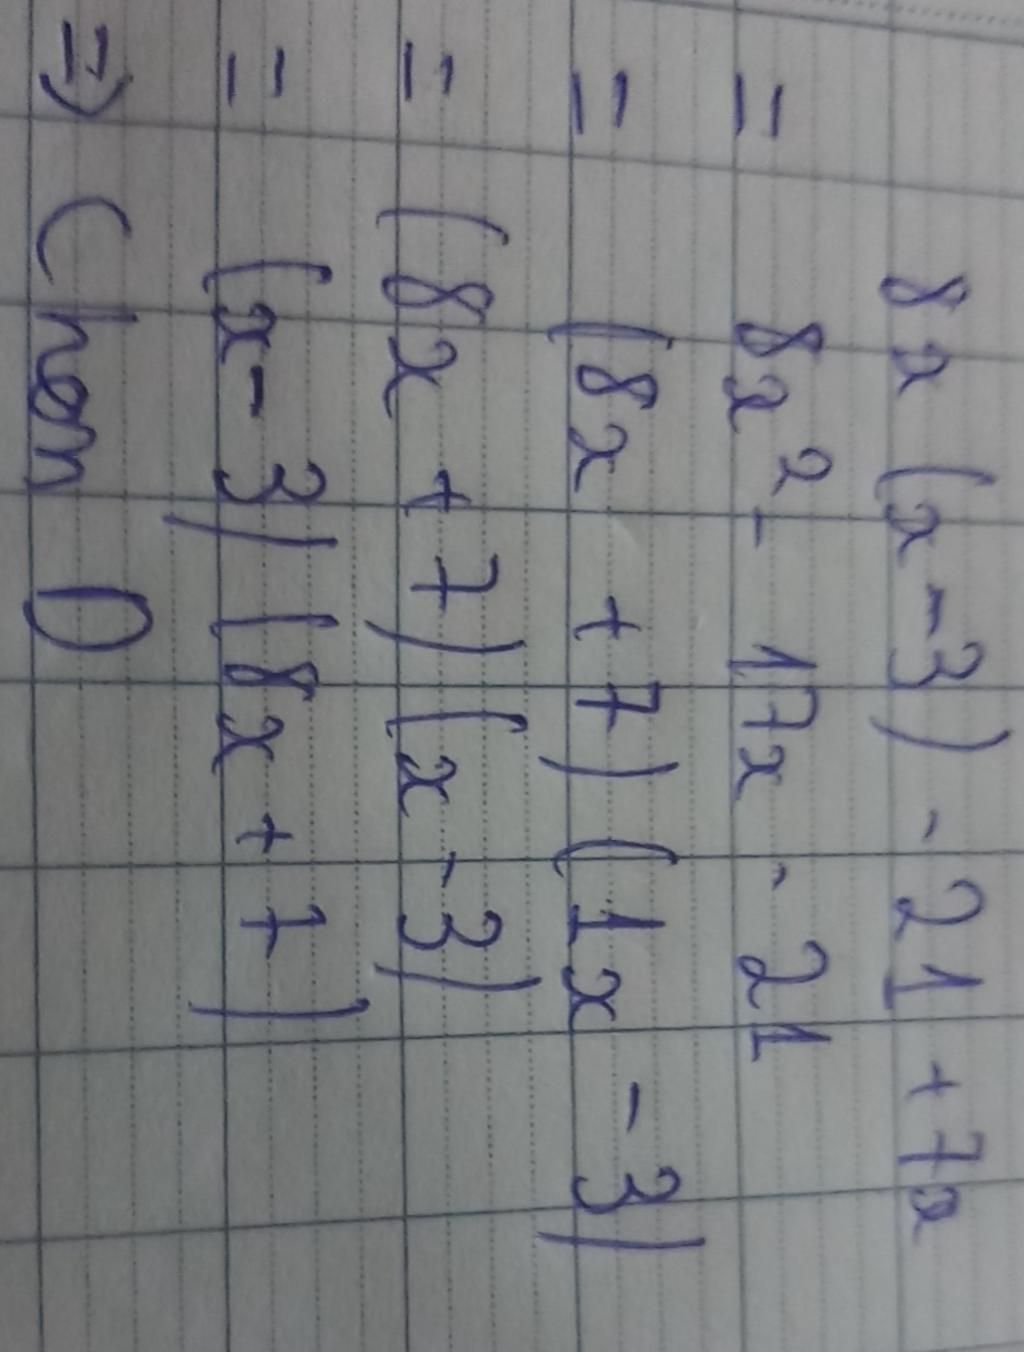 8x (x - 3) - 21 + 7x
= 8x² - 17x - 21
= (8x + 7) (1x - 3)
= (8x + 7) (x - 3)
= (x - 3) (8x + 7)
⇒ Chọn D